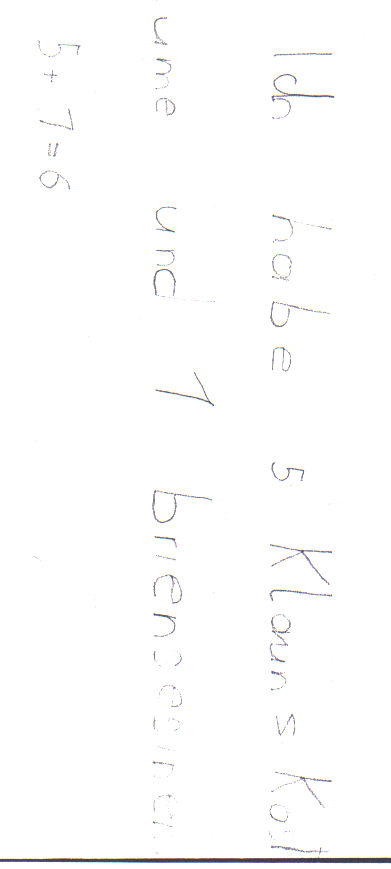 Ich habe 5 Klauns Kost
ume und 1 briensesinen
5+1=6